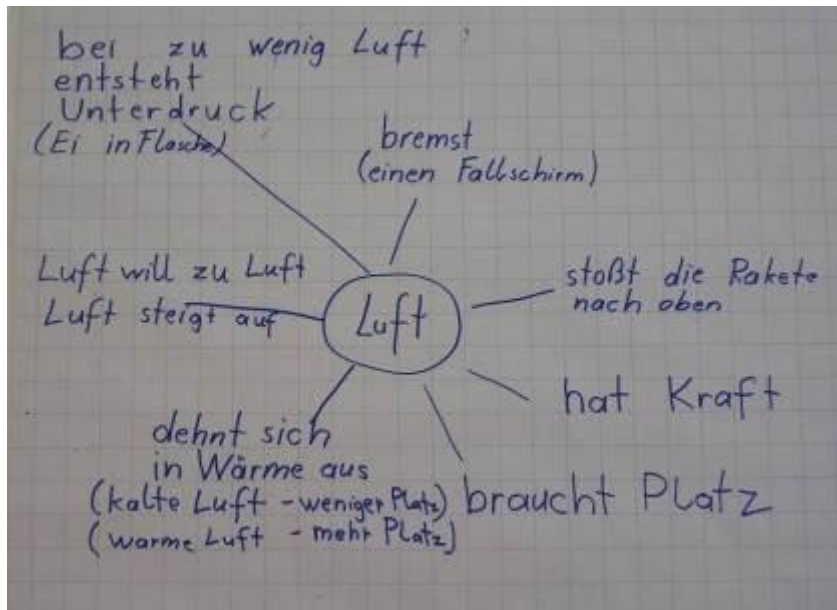 bei zu wenig Luft
entsteht
Unterdruck
(Ei in Flasche)
bremst
(einen Fallschirm)
Luft will zu Luft
Luft steigt auf
Luft
stoßt die Rakete
nach oben
hat Kraft
dehnt sich
in Wärme aus
(kalte Luft - weniger Platz)
(warme Luft - mehr Platz)
braucht Platz